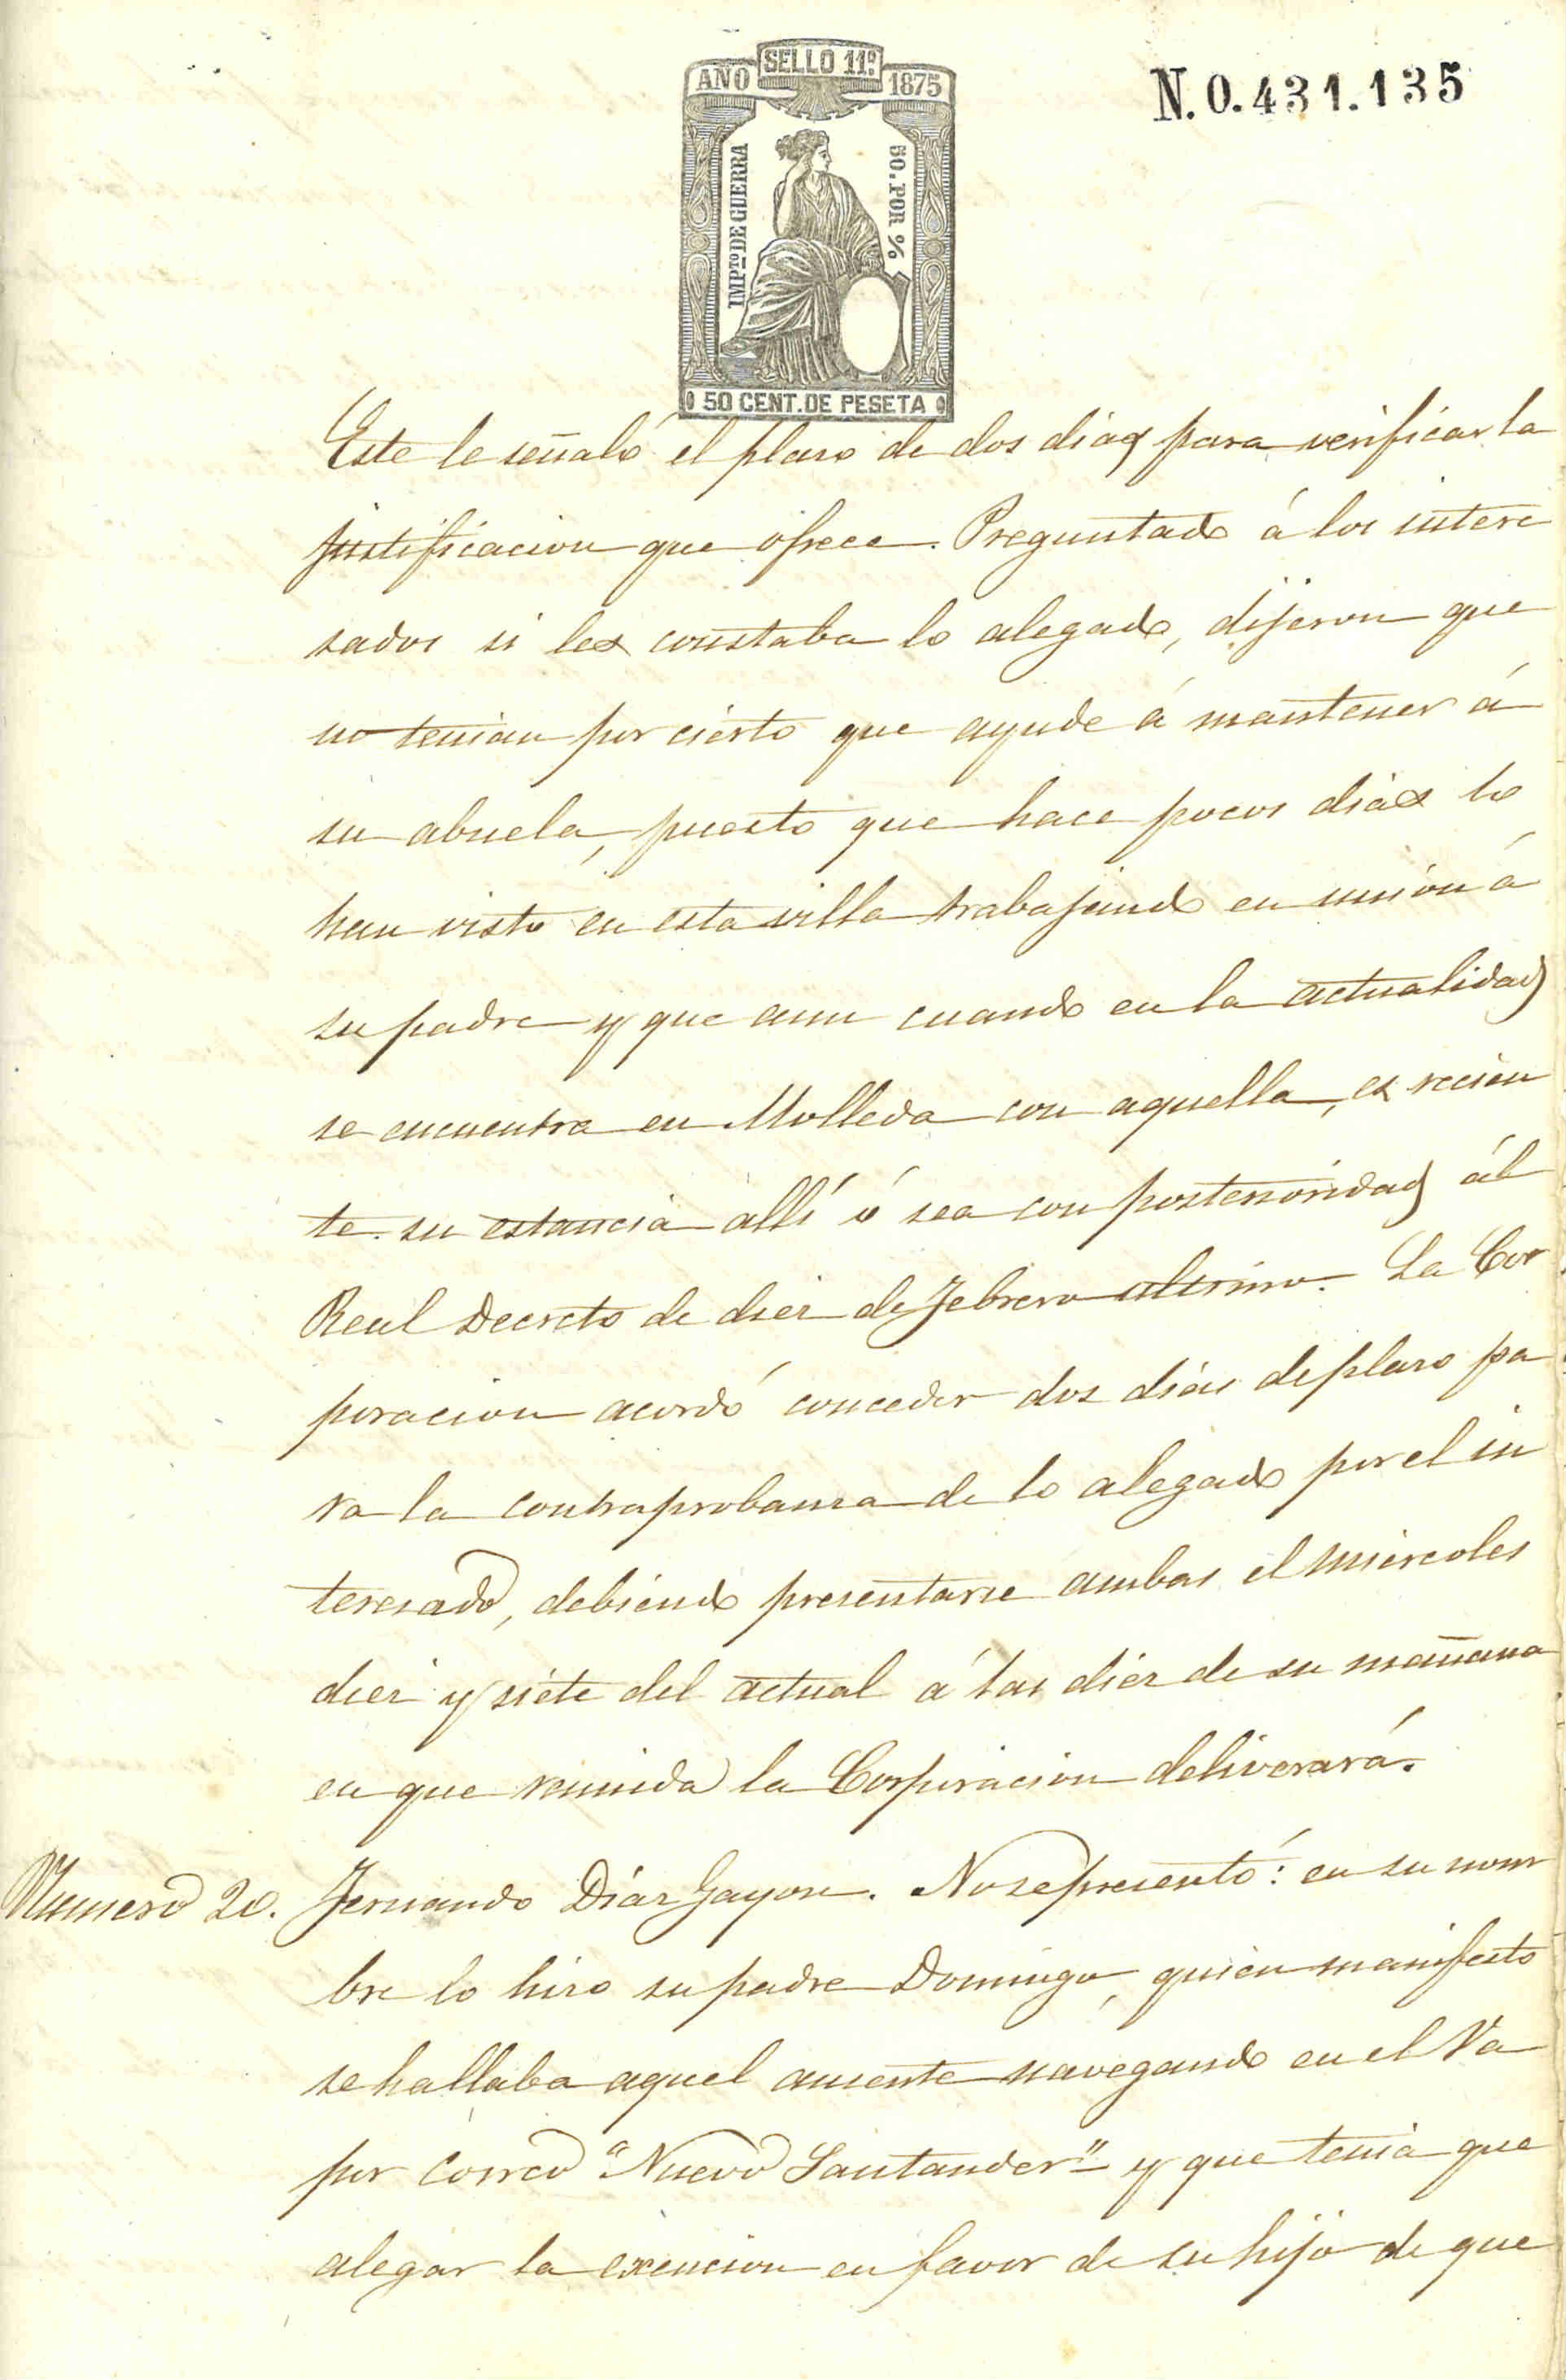 SELLO 11º
AÑO 1875
N.0.431.135
IMPTO DE GUERRA
50.POR %
50 CENT. DE PESETA
Este le señaló el plaso de dos dias para verificar la
justificacion que ofrece. Preguntado á los intere
sados si les constaba lo alegado, dijeron que
no tenian por cierto que ayude á mantener á
su abuela, puesto que hace pocos dias lo
han visto en esta villa trabajando en unión á
su padre y que aun cuando en la actualidad
se encuentra en Molleda con aquella, es recien
te su estancia allí ó sea con posterioridad ál
Real Decreto de diez de Febrero ultimo. La Cor
poracion acordó conceder dos dias de plaso pa
ra la contraprobanza de lo alegado por el in
teresado, debiendo presentarse ambas el miercoles
diez y siete del actual á las diez de su mañana
en que reunida la Corporacion deliverará.
Numero 20. Fernando Díaz Gayon. No se presentó: en su nom
bre lo hizo su padre Domingo, quien manifesto
se hallaba aquel ausente navegando en el Va
por correo "Nuevo Santander" y que tenia que
alegar la exencion en favor de su hijo de que